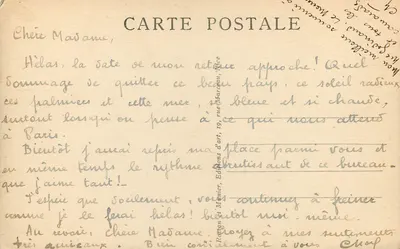 CARTE POSTALE
Chère Madame,
Hélas, la date de mon retour approche! Quel
dommage de quitter ce beau pays, ce soleil radieux
ces palmiers et cette mer, si bleue et si chaude,
surtout lorsqu'on pense à ce qui nous attend
à Paris.
Bientôt j'aurai repris ma place parmi vous et
en même temps le rythme abrutissant de ce bureau
que j'aime tant!
J'espère que doucement, vous
comme je le ferai hélas! bientôt moi-même.
Au revoir, Chère Madame, croyez à mes sentiments
très amicaux. Bien cordialement à vous
Mon meilleur souvenir